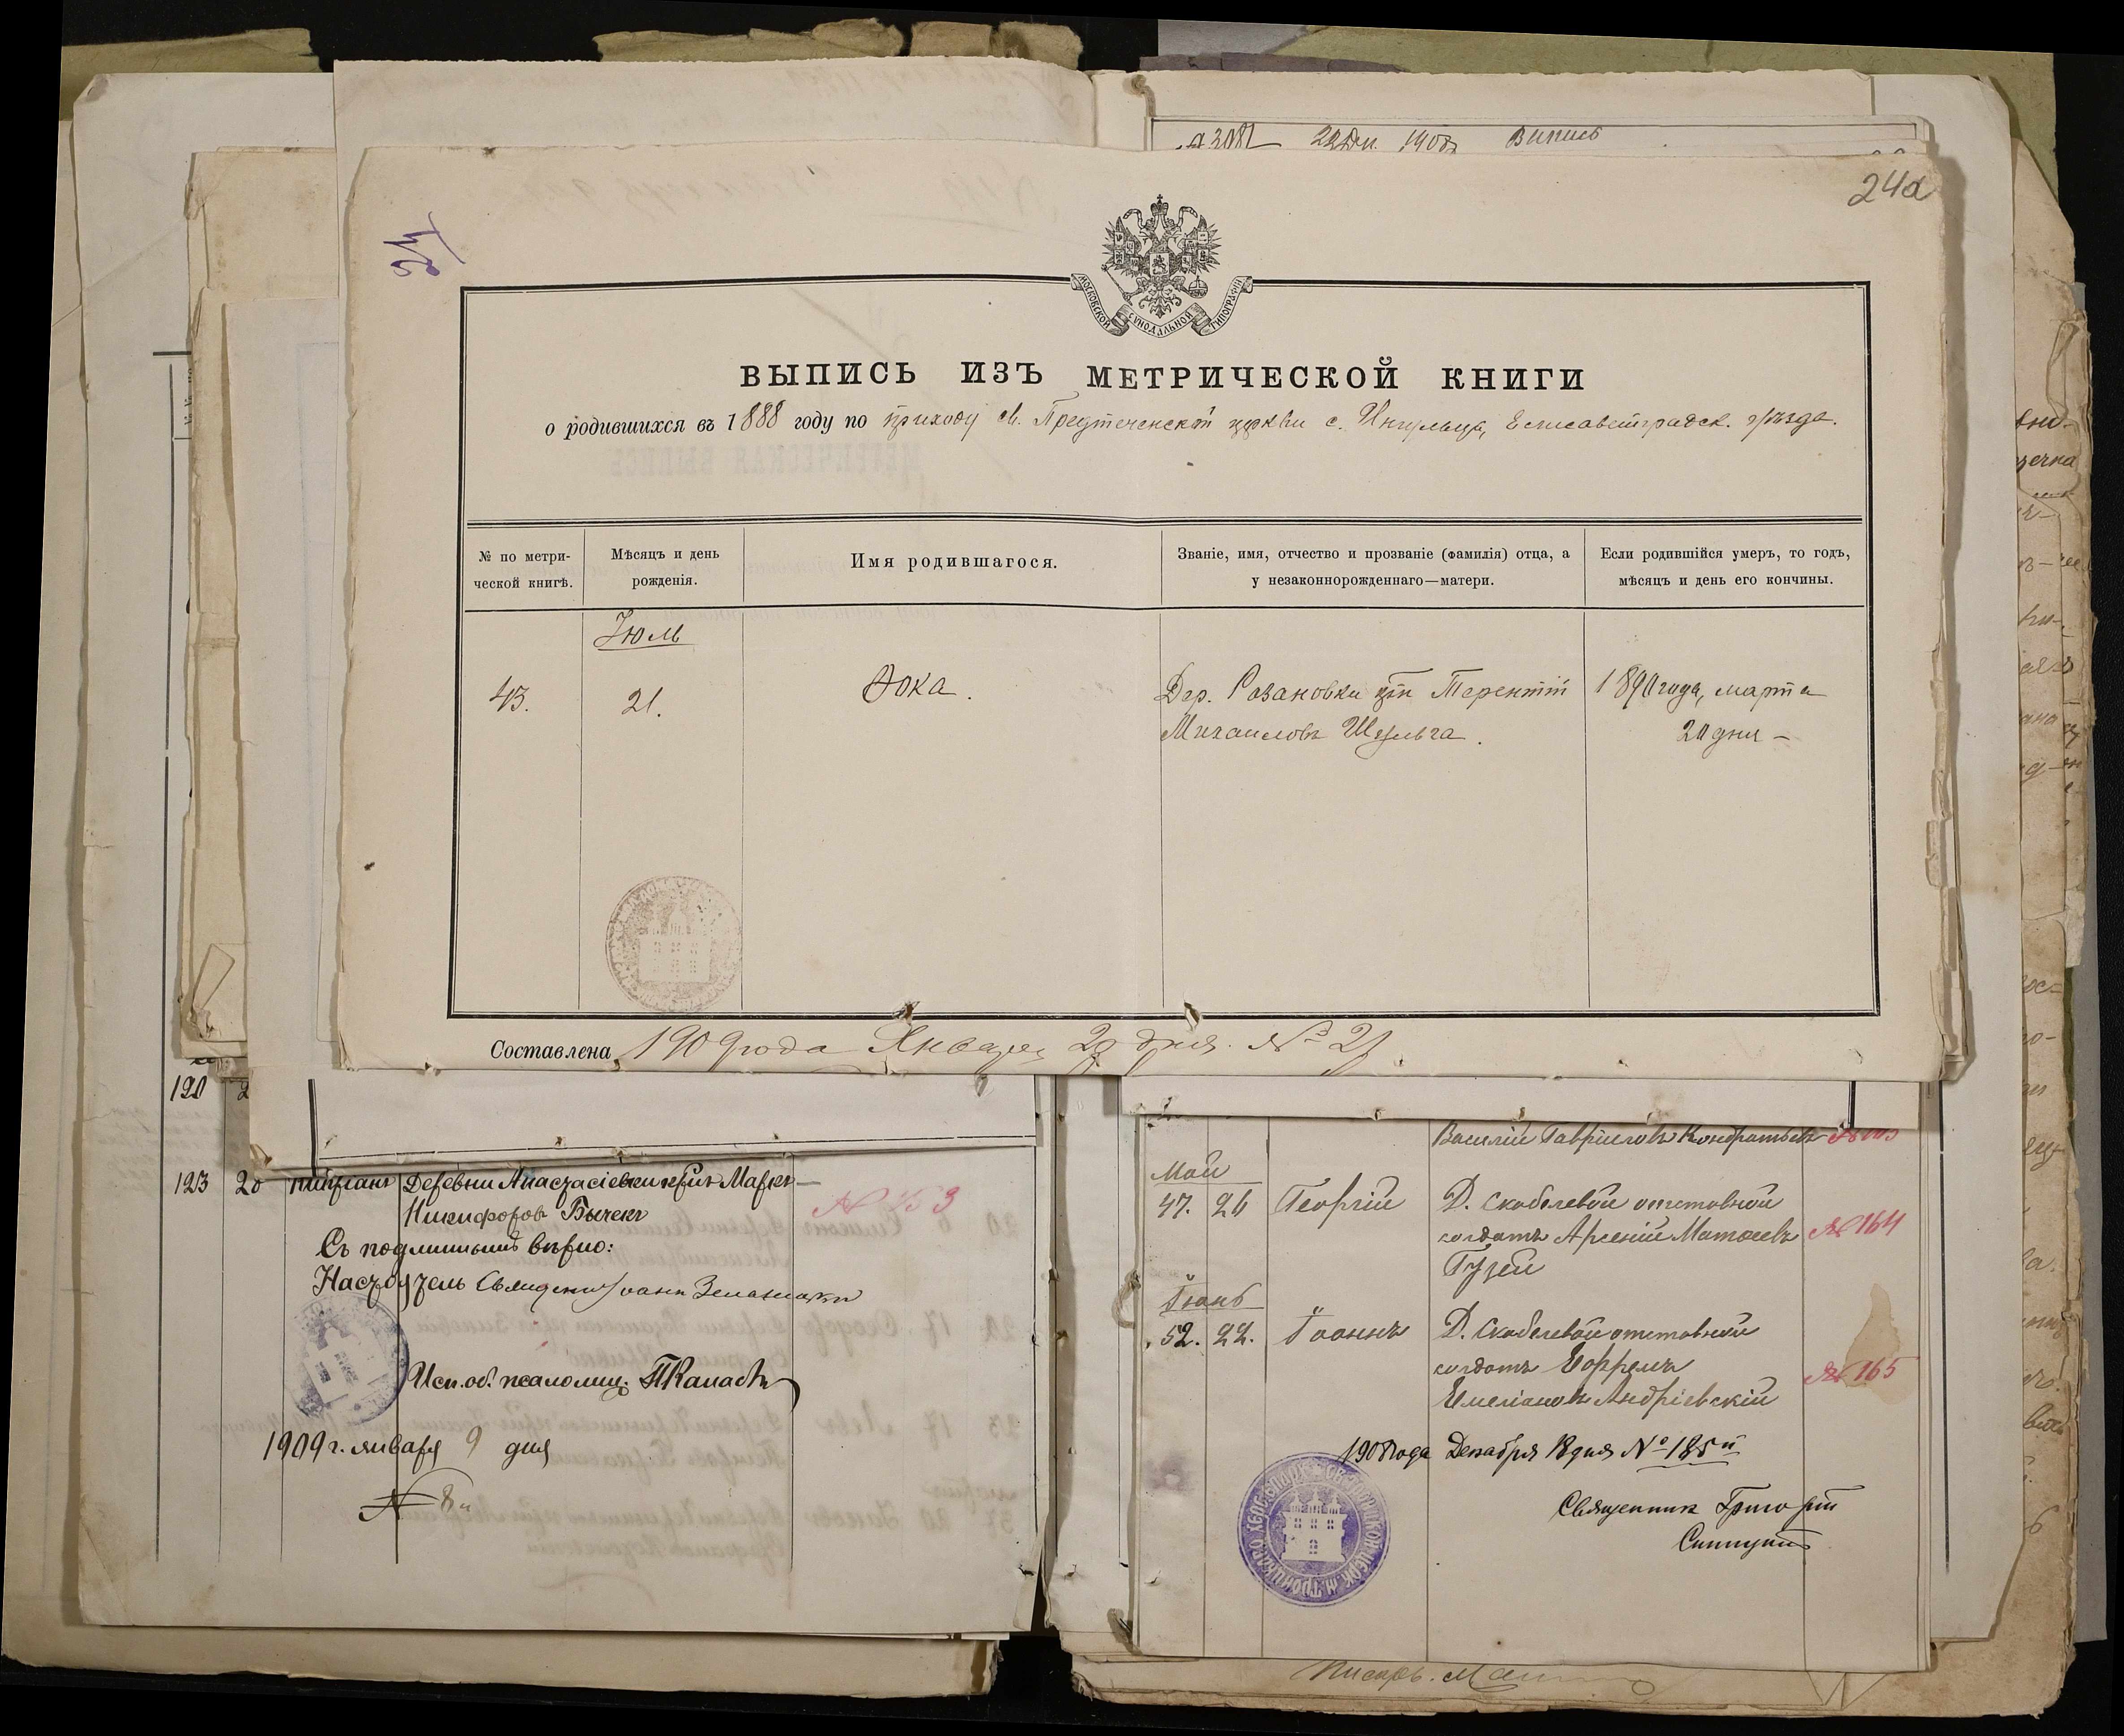 22 Дек. 1908 Выпись
24а
МОСКОВСКОЙ СѴНОДАЛЬНОЙ ТИПОГРАФІИ
ВЫПИСЬ ИЗЪ МЕТРИЧЕСКОЙ КНИГИ
о родившихся въ 1888 году по приходу св. Предтеченской церкви с. Ингульца, Елисаветградск. уѣзда.
№ по метри-
ческой книгѣ.
Мѣсяцъ и день
рожденія.
Имя родившагося.
Званіе, имя, отчество и прозваніе (фамилія) отца, а
у незаконнорожденнаго—матери.
Если родившійся умеръ, то годъ,
мѣсяцъ и день его кончины.
Іюль
43.
21.
Ѳока.
Дер. Розановки кр̃н Терентій
Михаиловъ Шульга.
1890 года, марта
20 дня –
Составлена 1909 года Января 20 дня. №
120
123 20 Кипріанъ Деревни Анастасіевки крн̃ъ Маркъ
Никифоровъ Бычекъ
Съ подлиннымъ вѣрно:
Настоятель Священникъ Іоаннъ
Исп. об. псаломщ.
1909 г. января 9 дня
№ 8й
Василій Гавріиловъ Кондратьевъ
Май
47. 26 Георгій Д. Скобелевой отставной
солдатъ Арсеній Матѳеевъ № 164
Гузей
Іюнь
52. 22. Іоаннъ Д. Скобелевой отставной
солдатъ Ефремъ № 165
Емеліановъ Андріевскій
1908 года Декабря 18 дня № 185й
Священникъ Григорій